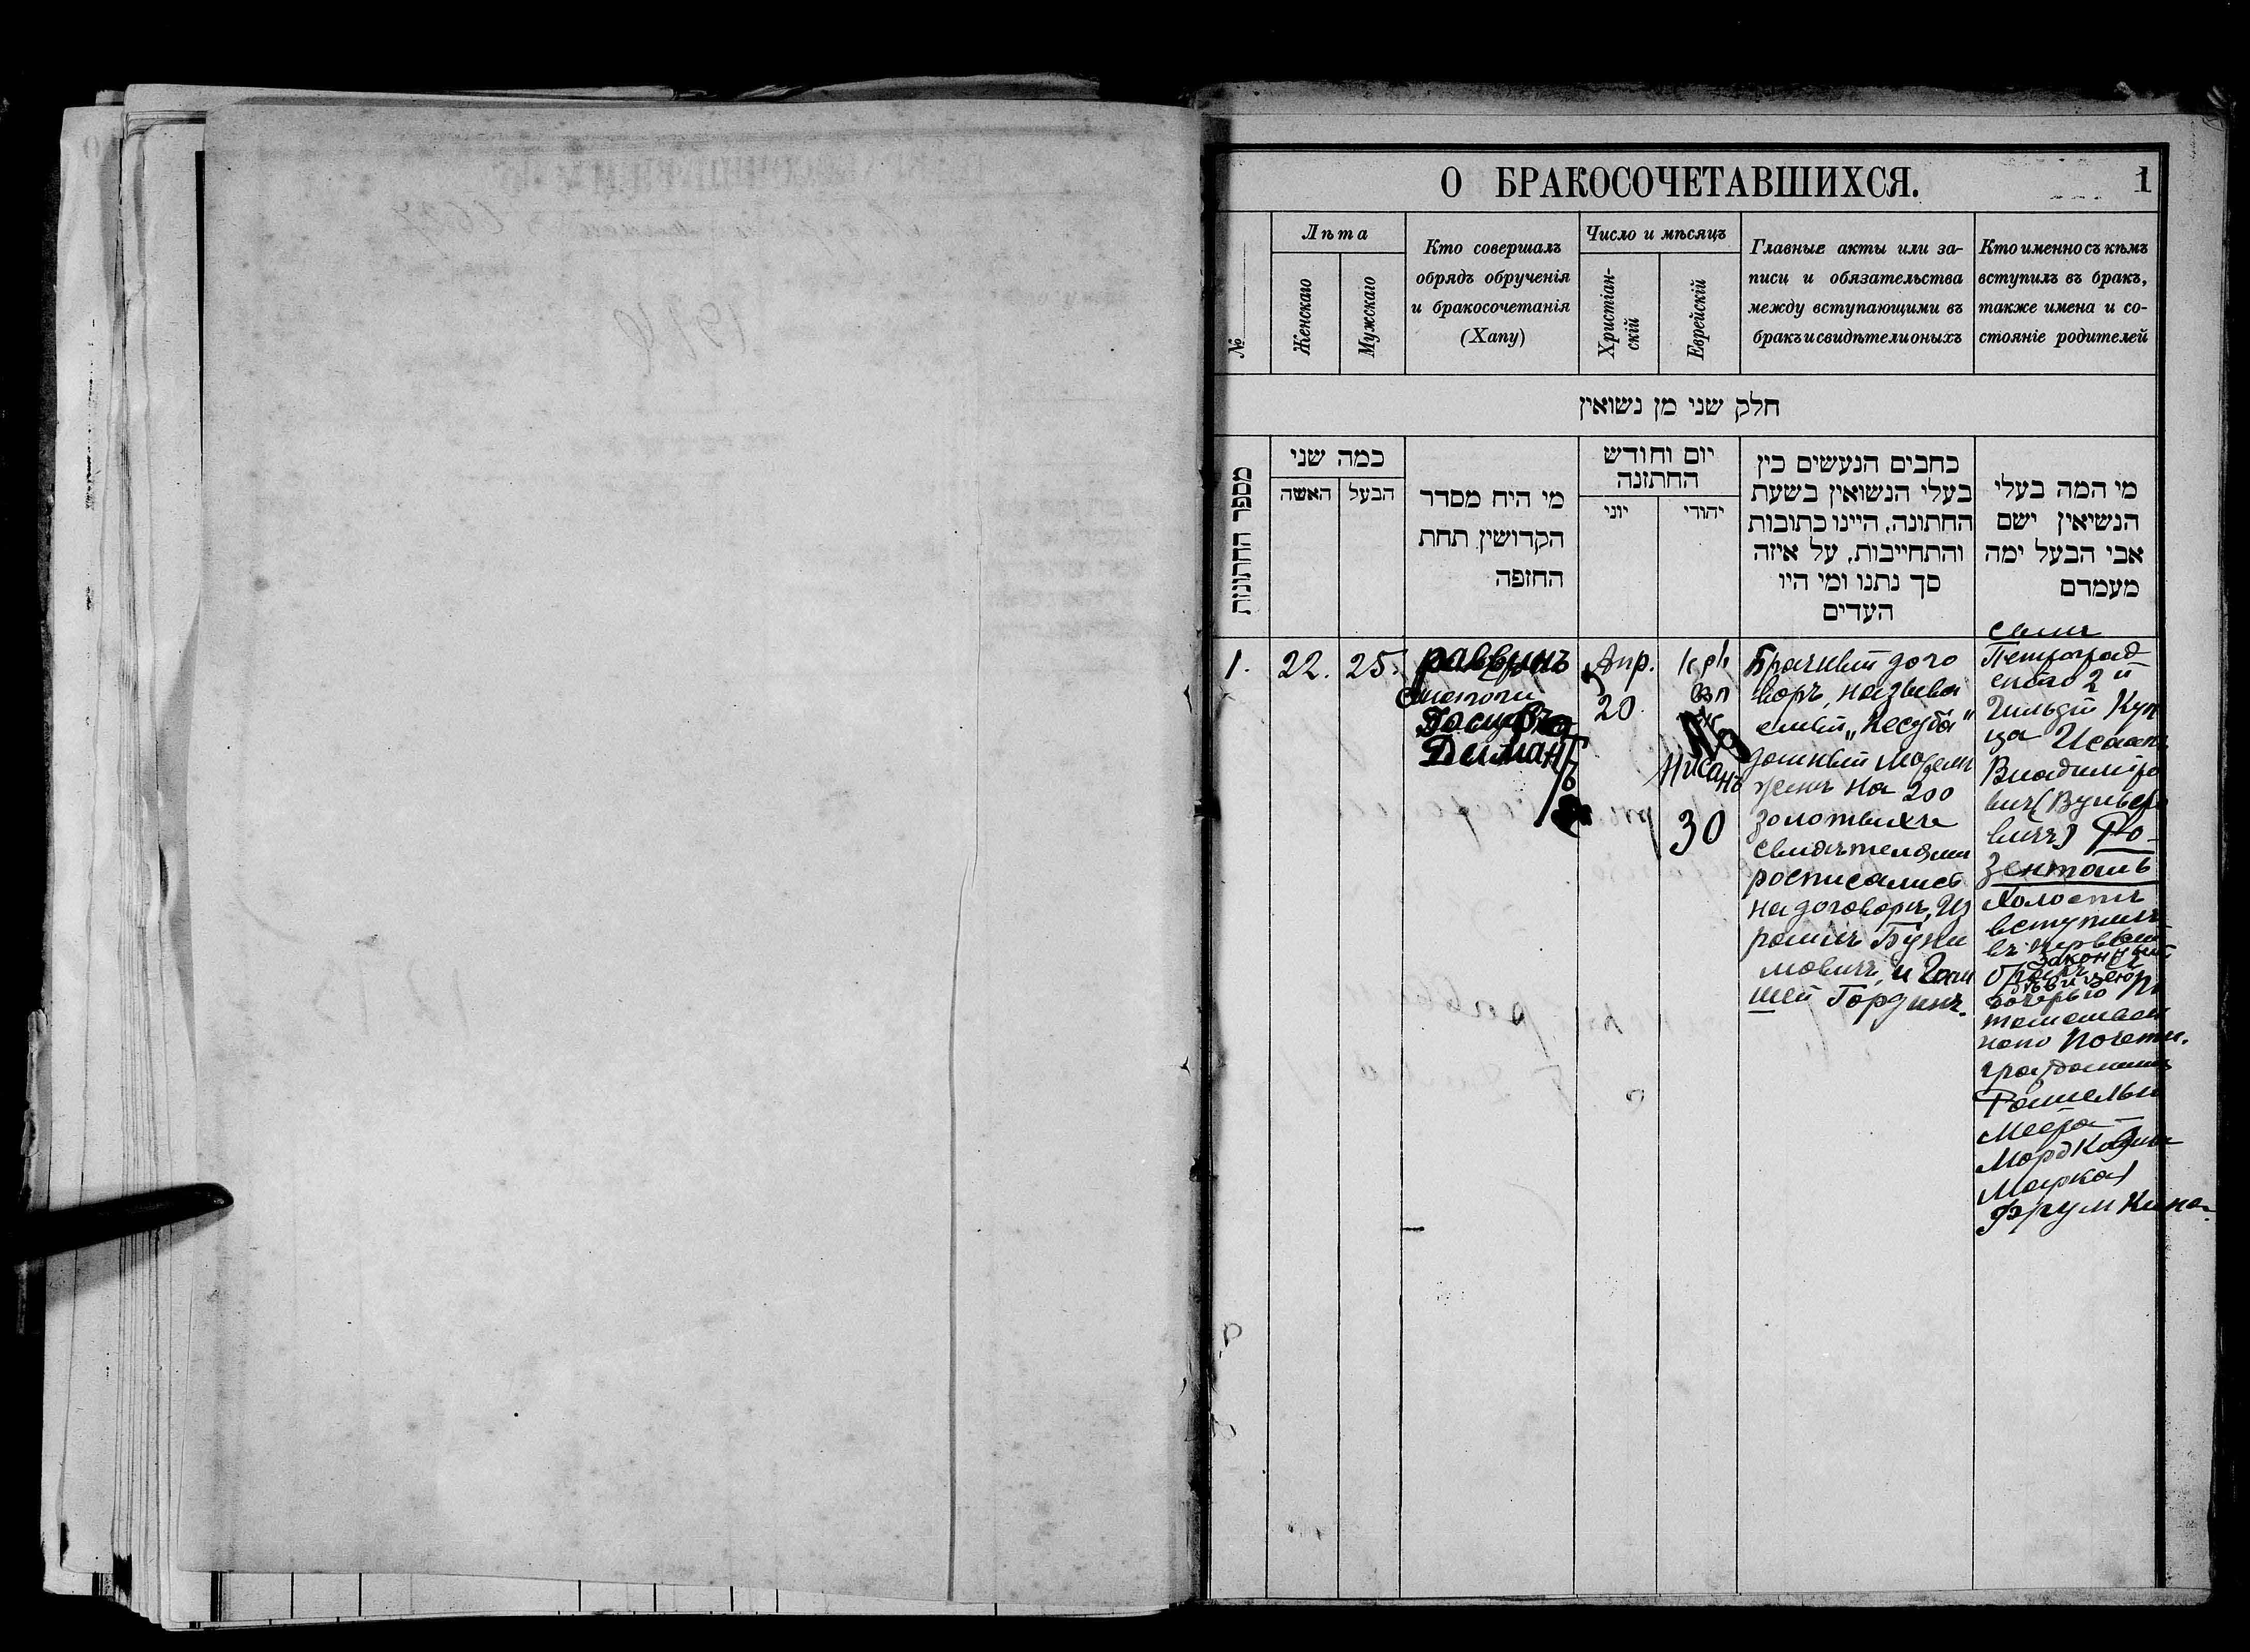 О БРАКОСОЧЕТАВШИХСЯ.
1
№
Лѣта
Женскаго
Мужскаго
Кто совершалъ
обрядъ обрученія
и бракосочетанія
(Хапу)
Число и мѣсяцъ
Христіан-
скій
Еврейскій
Главные акты или за-
писи и обязательства
между вступающими въ
бракъ и свидѣтели оныхъ
Кто именно съ кѣмъ
вступилъ въ бракъ,
также имена и со-
стояніе родителей
חלק שני מן נשואין
מספר החתונות
כמה שני
האשה
הבעל
מי היח מסדר
הקדושין תחת
החופה
יום וחודש
החתונה
יוני
יהודי
כחבים הנעשים בין
בעלי הנשואין בשעת
החתונה, היינו כתובות
והתחייבות, על איזה
סך נתנו ומי היו
העדים
מי המה בעלי
הנשיאין ישם
אבי הבעל ימה
מעמדם
1.
22.
25.
раввинъ
Деймантъ
Апр.
20
Нисанъ
30
Брачный дого
воръ, называ
емый „Кесуба"
данный
женъ на 200
золотыхъ
свидѣтелями
росписались
на договорѣ, Из
раиль Буни
мовичъ и
Гордонъ.
Петроград
скаго 2й
Гильдіи Куп
ца Исаакъ
Владиміро
вичъ (Вульфо
вичъ) Ро-
зенталь
Холостъ
вступилъ
въ первый
законный
бракъ съ
дочерью По
Почетн.
гражданина
Меера
Мордка
Фрумкина.